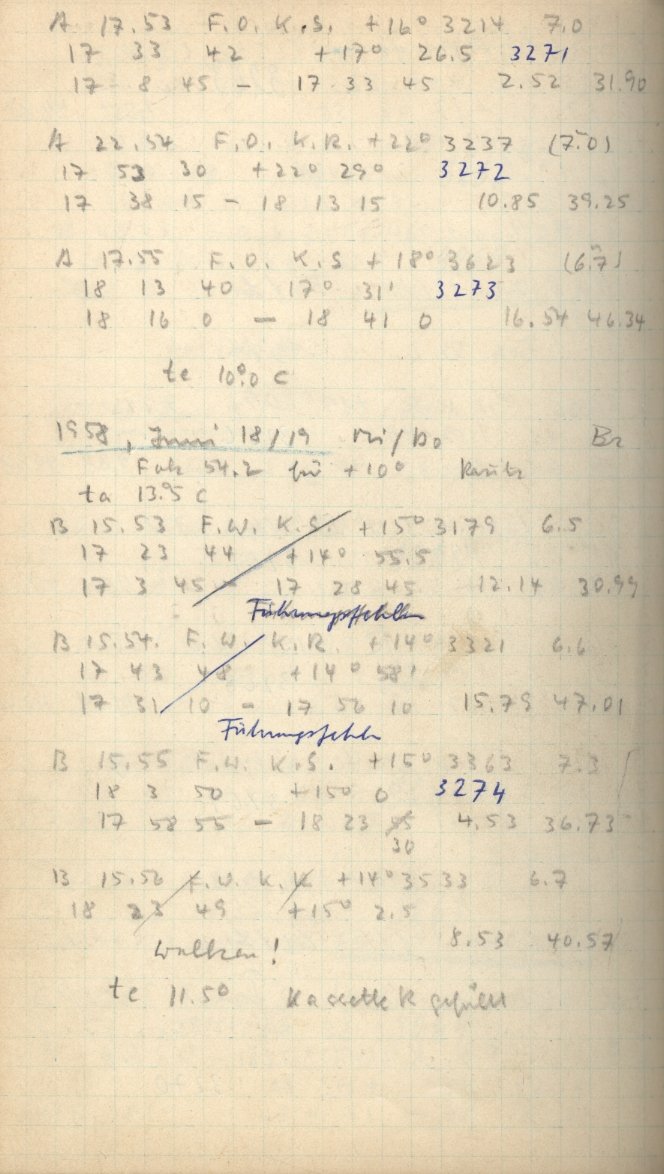 A 17.53 F.O. K.S. +16° 3214 7.0
17 33 42 +17° 26.5 3271
17 8 45 - 17 33 45 2.52 31.90
A 22.54 F.O. K.R. +22° 3237 (7.0)
17 53 30 +22° 29° 3272
17 38 15 - 18 13 15 10.85 39.25
A 17.55 F.O. K.S +18° 3623 (6.7)
18 13 40 17° 31' 3273
18 16 0 - 18 41 0 16.54 46.34
te 10°.0 C
1958, Juni 18/19 Mi/Do Br
Fok 54.2 für +10°
ta 13.95 C
B 15.53 F.W. K.S. +15° 3179 6.5
17 23 44 +14° 55.5
17 3 45 - 17 28 45 12.14 30.99
Führungsfehler
B 15.54. F.W. K.R. +14° 3321 6.6
17 43 48 +14° 58'
17 31 10 - 17 56 10 15.79 47.01
Führungsfehler
B 15.55 F.W. K.S. +15° 3363 7.3
18 3 50 +15° 0 3274
17 58 55 - 18 23 55 4.53 36.73
30
B 15.56 F.W. K.K +14° 3533 6.7
18 23 49 +15° 2.5
8.53 40.57
Wolken!
te 11.50 Kassette K gefüllt